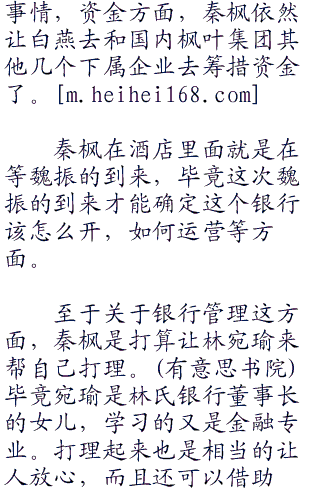 事情，资金方面，秦枫依然
让白燕去和国内枫叶集团其
他几个下属企业去筹措资金
了。[m.heihei168.com]
秦枫在酒店里面就是在
等魏振的到来，毕竟这次魏
振的到来才能确定这个银行
该怎么开，如何运营等方
面。
至于关于银行管理这方
面，秦枫是打算让林宛瑜来
帮自己打理。(有意思书院)
毕竟宛瑜是林氏银行董事长
的女儿，学习的又是金融专
业。打理起来也是相当的让
人放心，而且还可以借助